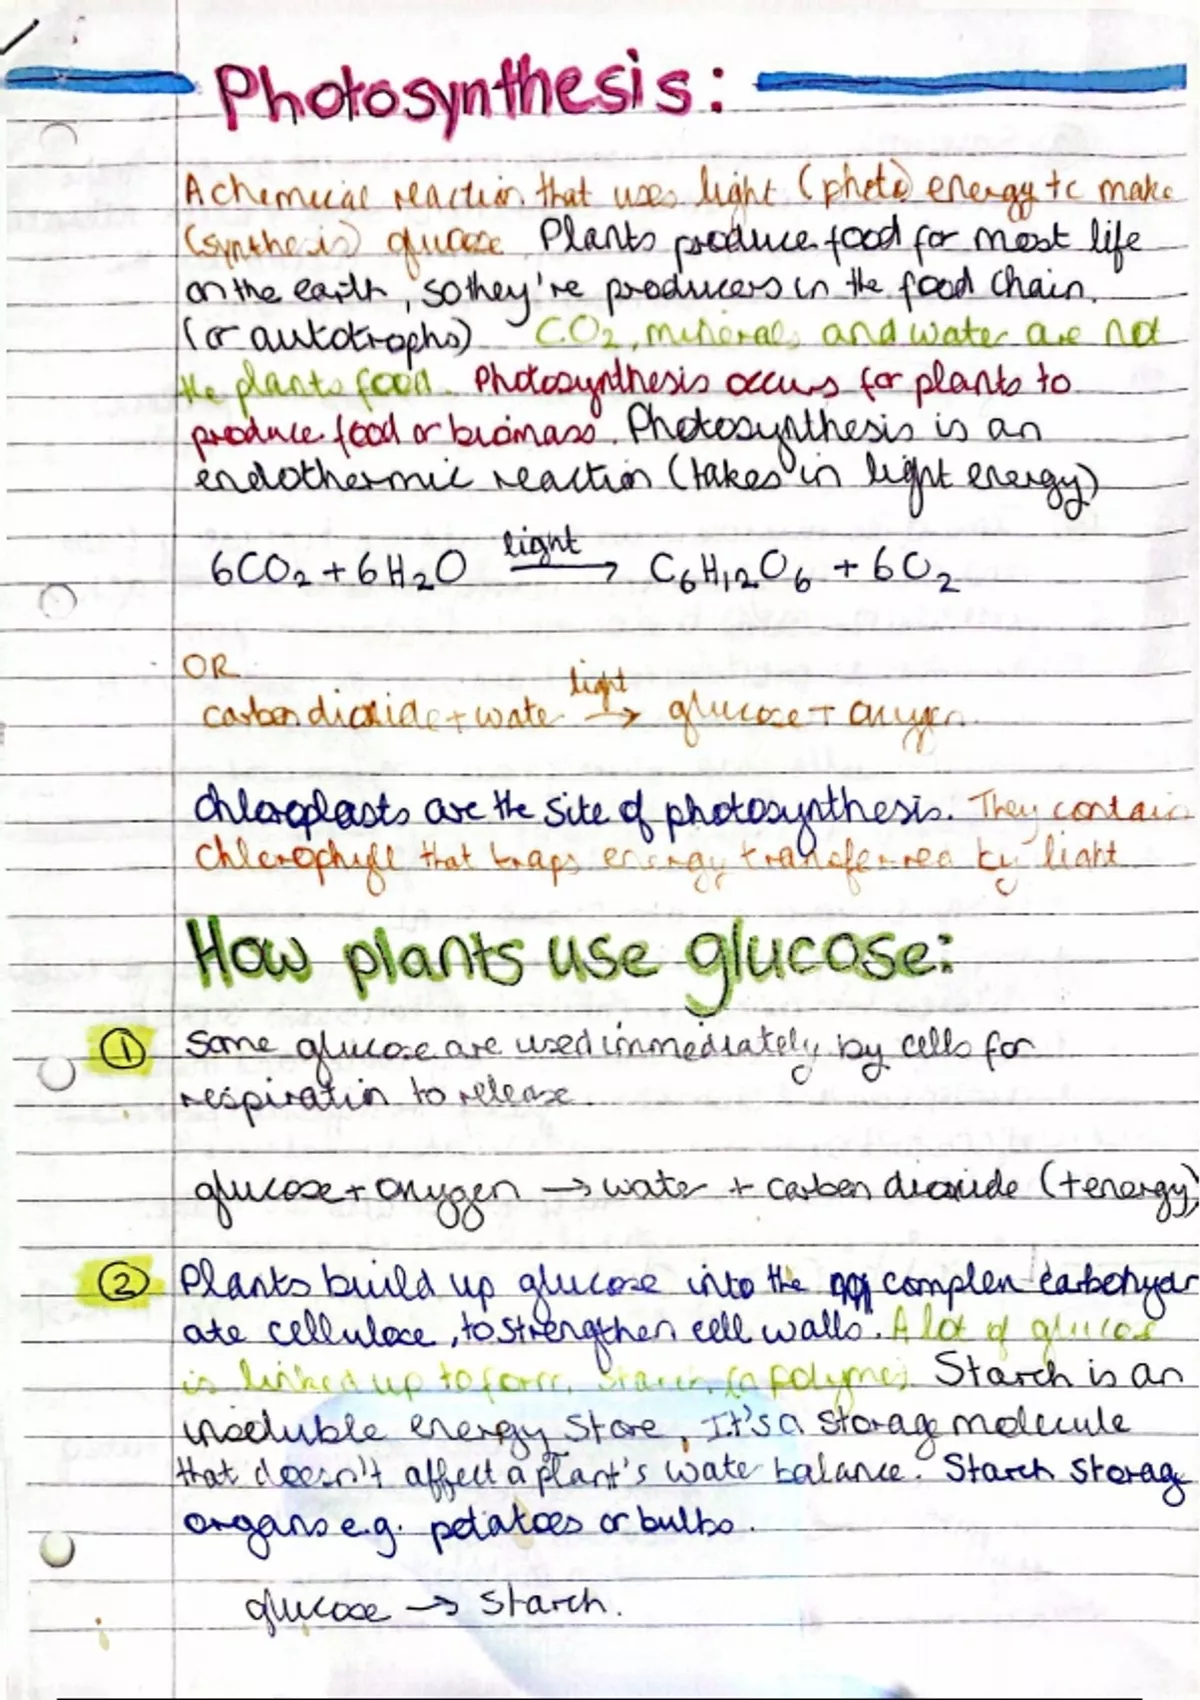 Photosynthesis:
A chemical reaction that uses light (photo) energy to make
(synthesis) glucose. Plants produce food for most life
on the earth, so they're producers in the food chain.
(or autotrophs) CO2, minerals and water are not
the plants food. Photosynthesis occurs for plants to
produce food or biomass. Photosynthesis is an
endothermic reaction (takes in light energy)
light
6CO2 + 6H2O → C6H12O6 + 6O2
OR
light
carbon dioxide + water → glucose + oxygen.
chloroplasts are the site of photosynthesis. They contain
chlorophyll that traps energy transferred by light
How plants use glucose:
① Some glucose are used immediately by cells for
respiration to release.
glucose + oxygen → water + carbon dioxide (+energy)
② Plants build up glucose into the complex carbohydr
ate cellulose, to strengthen cell walls. A lot of glucose
is linked up to form starch (a polymer). Starch is an
insoluble energy store. It's a storage molecule
that doesn't affect a plant's water balance. Starch storage
organs e.g. potatoes or bulbs.
glucose → starch.